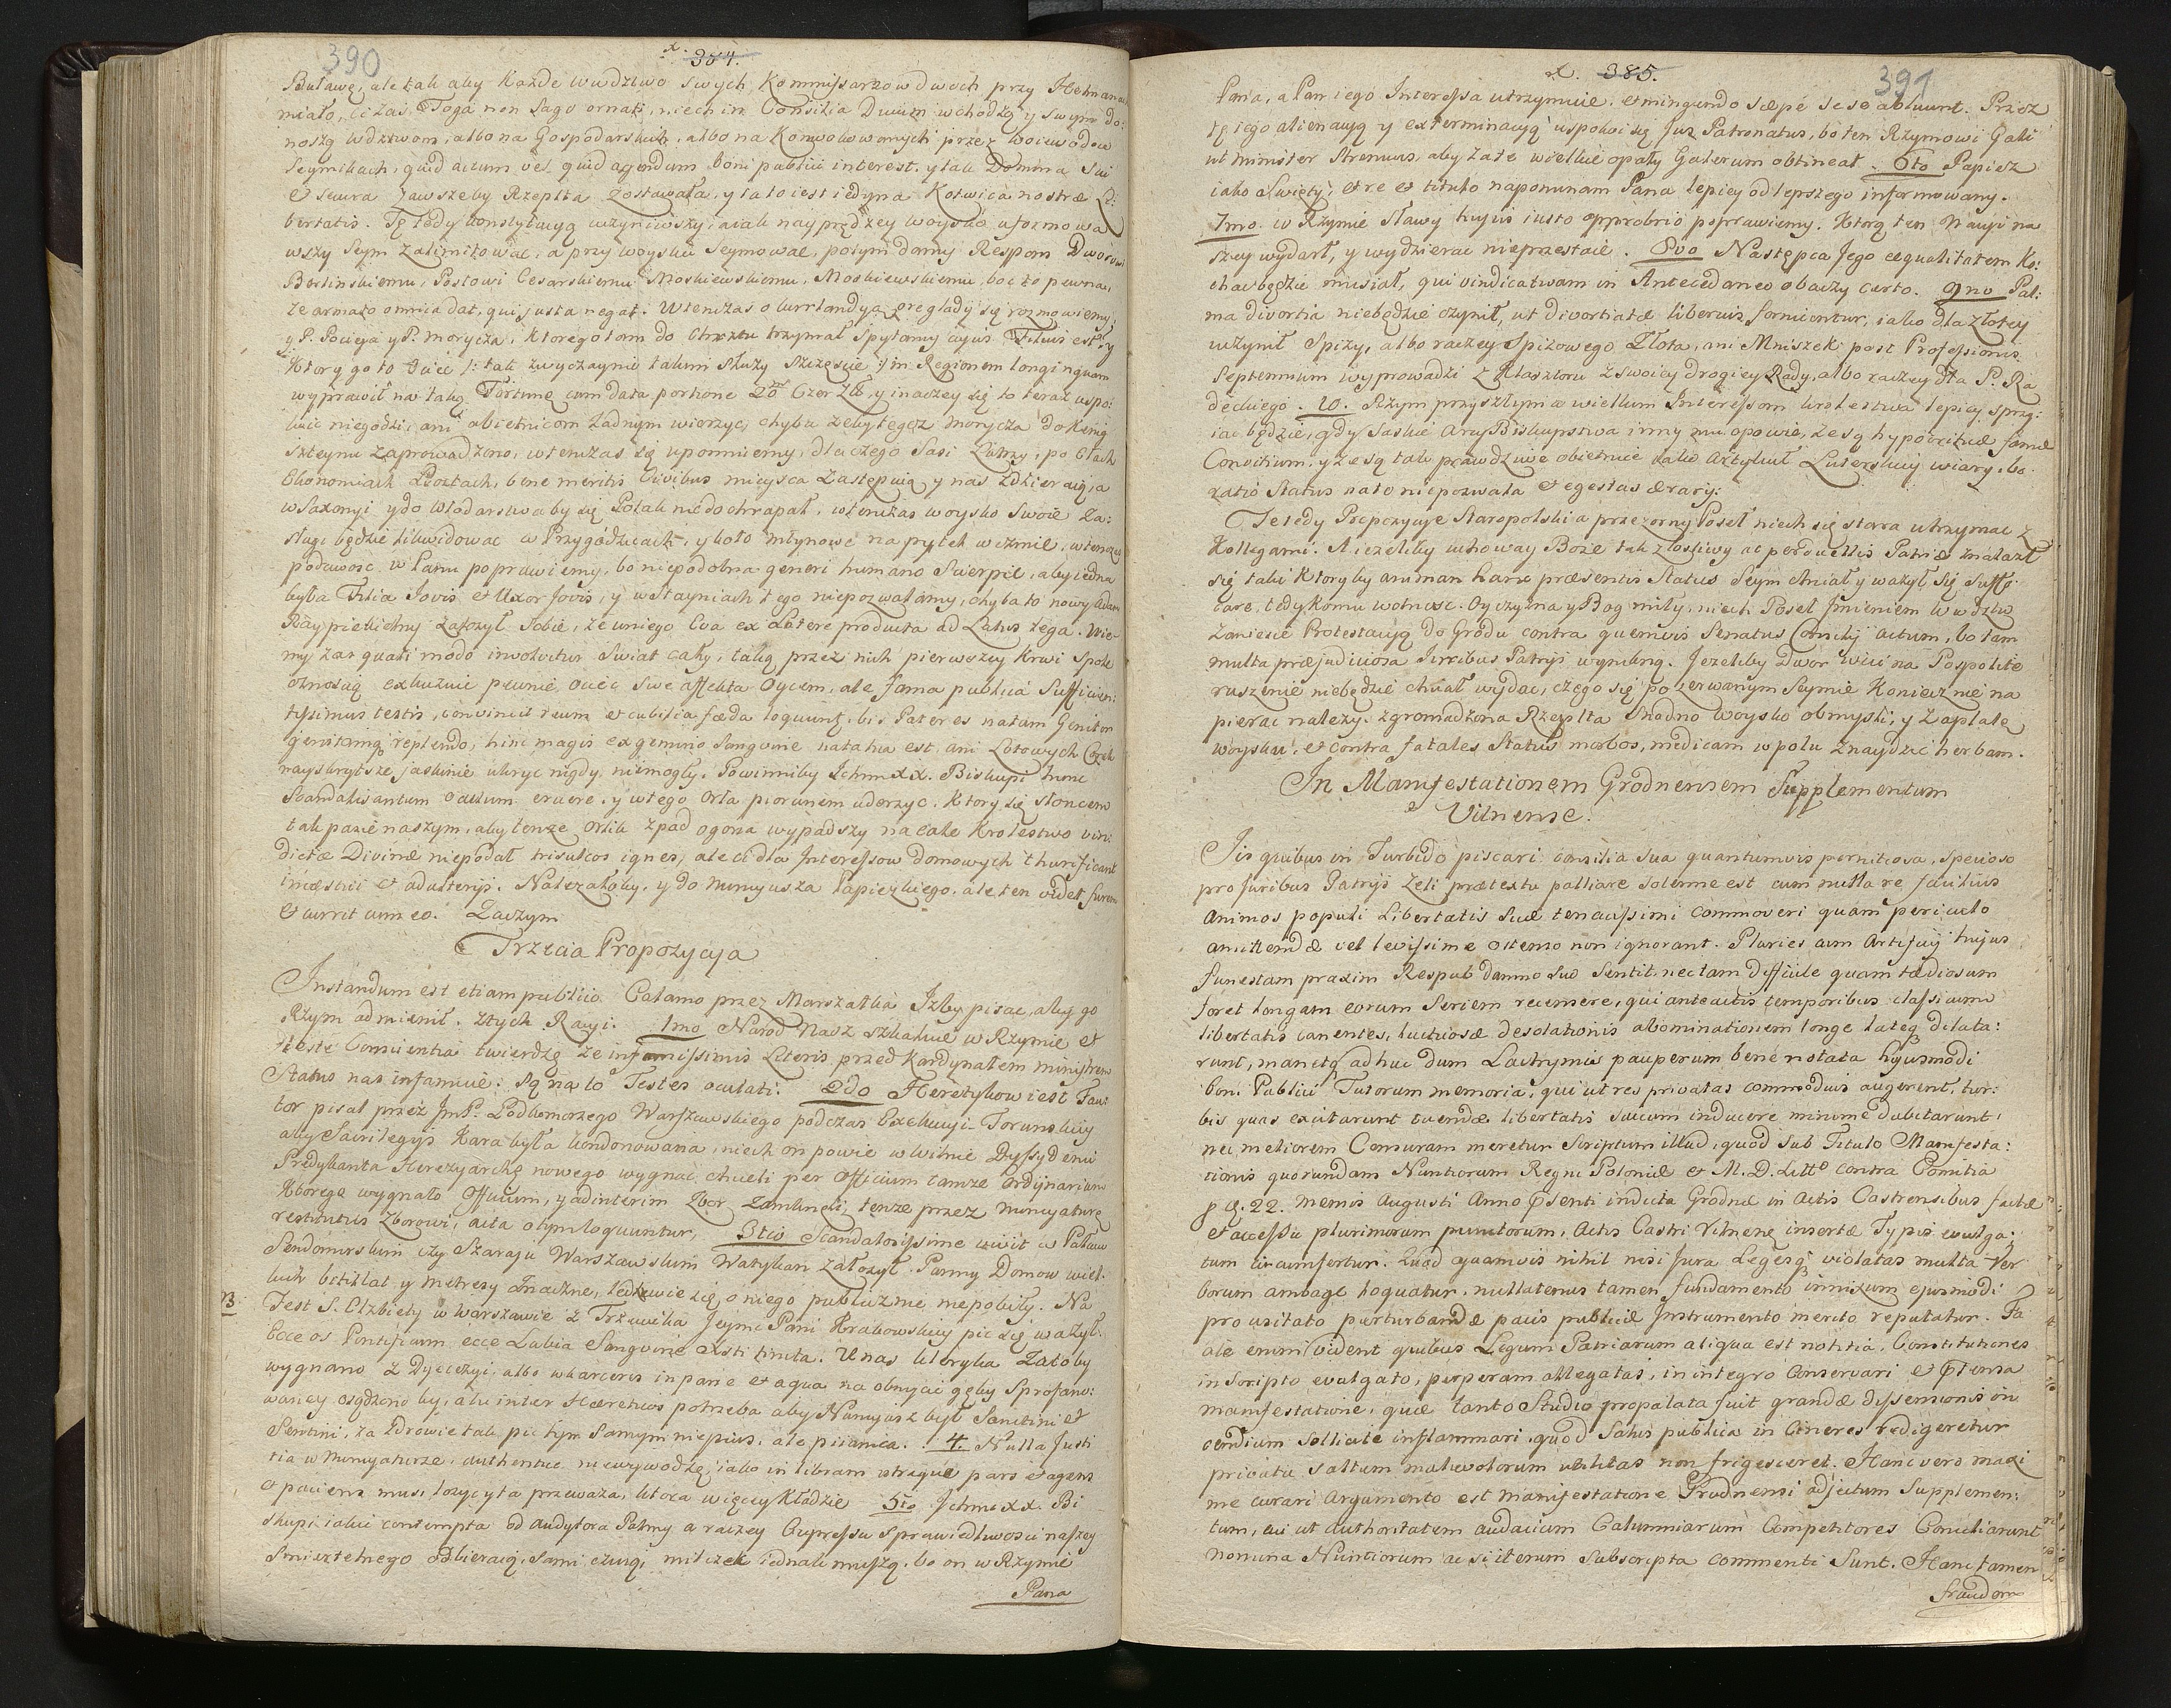 390
x. 384.
Buławę, ale tak aby Każde wwdztwo swych Kommissarzow dwoch przy Hetmanach
miało, ci zaś Toga non Sago ornati, niech in Consilia Ducum wchodzą y swym do:
noszą wdztwom, albo na Gospodarskich, albo na Konwokowanych przez Woiewodow
Seymikach, quid actum vel quid agendum boni publici interest, y tak Domina Sui
et secura zawszeby Rzeplta zostawała, y ta to iest iedyna Kotwica nostræ Li:
bertatis. Tę tedy konstytucyą uczyniwszy, a iak nayprędzey woysko uformowa
wszy Seym zalimitować, a przy woysku Seymować, potym damy Respons Dworowi
Berlinskiemu, Posłowi Cesarskiemu Moskiewskiemu, Moskiewskiemu, boć to pewna,
że armato omnia dat, qui justa negat. Wtenczas o Kurrlandyą rozmowiemy,
y P. Pocieja y P. Morycza, Ktorego tam do Chrztu trzymał spytamy cujus Filius est, y
Ktory go to Ociec /: tak zwyczaynie takim służy szczęście :/ in Regionem longinquam
wyprawił na taką Fortunę cum data portione 20 Czer Zł, y inaczey się to teraz uspo:
koić niegodzi, ani obietnicom żadnym wierzyć, chyba żeby tegoż Morycza do Kinig
szteynu zaprowadzono, wtenczas się upomniemy, dlaczego Sasi Lutrzy, po Cłach
Ekonomiach Pocztach, bene meritis Civibus mieysca zastępuią y nas zdzieraią, a
w Saxonyi y do Włodarstwa by się Polak nie dochrapał, wtenczas woysko swoie Za:
sługi będzie likwidować w Przygodzicach, y koło młynowe na pytel weźmie, wtenczas
podeyrość w Panu poprawiemy, bo niepodobna generi humano Scierpić, aby iedna
była Filia Jovis et Uxor Jovis, y w Stayniach tego niepozwalamy, chyba to nowy Adam
Ray piekielny założył sobie, że u niego Eva ex Latere producta ad Latus lega. Wie-
my zaś quasi modo involvitur Swiat cały, taką przez nich pierwszey krwi społe
cznością exkuzuie pewnie Ociec sive affekta Oycem, ale fama publica Sufficien:
tissimus testis, convincit reum et cubilia fæda loquunt, bis Pater es natam Genitor
genitamq replendo, hinc magis ex gemino Sangvine nata tua est, ani Lotowych Corek
nayskrytsze jaskinie ukryć nigdy niemogły. Powinniby Ichmmxx. Biskupi hunc
Scandalisantum Oculum eruere, y w tego Orła piorunem uderzyć, Ktory się słoncem
tak pasie naszym, aby tenże Orlik zpad ogona wypadszy na całe Krolestwo vin:
dictæ Divinæ niepodał trisulcos ignes, ale ci dla Interessow domowych thurificant
incestui et adulterijs. Należałoby, y do Nuncyusza Papiezkiego, ale ten videt furem
et currit cum eo. Zaczym
Trzecia Propozycya
Instandum est etiam publico Calamo przez Marszałka Izby pisać, aby go
Rzym odmienił. Ztych Racyi. 1mo Narod nasz szkaluie w Rzymie et
teste Conscientia twierdzę że infamissimis Literis przed Kardynałem ministrem
Status nas infamuie: są na to Testes oculati. 2do Heretykow iest Fau:
tor pisał przez JmP. Podkomorzego Warszawskiego podczas Exekucyi Torunskiey
aby Sacrilegijs Kara była kondonowana, niech on powie w Wilnie Dyssydenci
Predykanta Herezyarchę nowego wygnać chcieli per Officium tamże Ordijnarium
Ktorego wygnało Officium, y ad interim Zbor zamknęli, tenże przez Nuncyaturę
restitutus Zborowi, acta olim loquuntur, 3tio Scandalosissime vivit w Pałacu
Sendomirskim czy Szaraju Warszawskim Watykan założył. Panny Domow wiel.
kich betkłał y metresy znaczne, ledwie się o niego publicznie niepobiły. Na
B. Fest S. Elzbiety w Warszawie z Trzewika Jeymci Pani Krakowskiey pić się ważył.
Ecce os Pontificum, ecce Labia Sangvine Xsti tincta. U nas kleryka zatoby
wygnano z Dyecezyi, albo w karceris in pane et aqua na obmycie gęby sprofano:
waney osądzono by, ale inter Hæreticos potrzeba aby Nuncyusz był Sanctini et
Sentini, za zdrowie tak pić tym samym niepiią, ale piianica. 4. Nulla Justi
tia w Nuncyaturze, authentice niewywodzę, iako in libram utraque pars et agens
et paciens musi łożyć y ta przeważa, ktora więcey Kładzie 5to Jchmcxx. Bi
skupi iakie contempta od Audytora Palmy a raczey Cupressu Sprawiedliwości naszey
Smiertelnego odbieraią, sami czuią, milczeć iednak muszą, bo on w Rzymie
Pana
x. 385.
391
Pana, a Pan iego Interessa utrzymuie, et mingendo sæpe sese abluunt. Przez
tę iego alienacyą y exterminacyą uspokoi się Jus Patronatus, bo ten Rzymowi Gali
ut minister Strenuus, aby za te wielkie opały Galerum obtineat. 6to Papież
iako Swięty, et re et titulo napominam Pana lepiey od lepszego informowany.
7mo w Rzymie sławy hujus iusto opprobrio poprawiemy, Ktorą ten Nacyi na
szey wydarł, y wydzierać nieprzestaie. 8vo Następca Jego æqualitatem Ko:
chać będzie musiał, qui vindicativam in Antecedaneo obaczy certo. 9no Pal:
ma divortia niebędzie czynił, ut divortiatæ liberius fornicentur, iako dla złotey
uczynił Spizy, albo raczey Spiżowego Złota, ani Mniszek post Professionis
Septennium wyprowadzi z Klasztoru z swoiey drogiey Rady, albo raczey dla P. Ra
deckiego. 10. Rzym przyszłym a wielkim Interessom krolestwa lepiey sprzy:
iać będzie, gdy Saskie ArcyBiskupstwa inny mu opowie, że są hypocrituæ famæ
Convitium, y że są tak prawdziwe obietnice iako Artykuł Luterskiey wiary, bo
ratio Status na to niepozwala et egestas ærarij.
Te tedy Propozycye Staropolski a przezorny Poseł niech się stara utrzymać z
Kollegami. A ieżeliby uchoway Boże tak złosliwy ac perduellis Patriæ znalazł
się taki Ktoryby animam hanc præsentis Status Seym chciał y ważył się suffo
care, tedy komu wolność, Oyczyzna y Bog miły, niech Poseł Imieniem Wwdztw
zaniesie Protestacyą do Grodu contra quemvis Senatus Consilij actum, bo tam
multa præjudiciosa Juribus Patrijs wynikną. Jeżeliby Dwor wici na Pospolite
ruszenie niebędzie chciał wydać, czego się po zerwanym Seymie Koniecznie na
pierać należy, zgromadzona Rzeplta Snadno Woysko obmysli, y zapłatę
woysku, et contra fatales Status morbos, medicam w polu znaydzie herbam.
In Manifestationem Grodnensem Supplementum
Vilnense.
Jis quibus in Turbido piscari consilia sua quantumvis pernitiosa, specioso
pro juribus Patrijs Zeli prætextu palliare solemne est cum nulla re facilius
Animos populi Libertatis suæ tenacissimi commoveri quam periculo
amittendæ vel levissime ostenso non ignorant. Pluries cum Artificij hujus
funestam praxim Respub damno suo sentit, nec tam difficile quam tædiosum
foret longam eorum Seriem recensere, qui anteactis temporibus classicum
libertatis canentes, luctuosæ desolationis abominationem longe lateq dilata:
runt, manetq adhuc dum Lachrymis pauperum bene notata hujusmodi
boni Publici Tutorum memoria, qui ut res privatas commodius augerent, tur:
bis quas excitarunt tuendæ libertatis succum inducere minime dubitarunt,
nec meliorem Censuram meretur Scriptum illud, quod sub Titulo Manifesta:
tionis quorundam Nuntiorum Regni Poloniæ et M. D. Litto contra Comitia
p q. 22. mensis Augusti Anno psenti indicta Grodnæ in Actis Castrensibus factæ
et accessu plurimorum punctorum, Actis Castri Vilnens insertæ Typis evulga:
tum circumfertur. Quod quamvis nihil nisi Jura Legesq violatas multa Ver
borum ambage loquatur, nullatenus tamen fundamento innixum ejusmodi
pro usitato perturbandæ pacis publicæ Instrumento merito reputatur. Fa
cile enim vident quibus Legum Patriarum aliqua est notitia, Constitutiones
in Scripto evulgato, perperam allegatas, in integro Conservari et ptensa
manifestatione, quæ tanto Studio propalata fuit grandæ dissensionis in
cendium sollicite inflammari, quod Salus publica in Cineres redigeretur
privata saltum malevolorum utilitas non frigesceret. Hanc vero maxi
me curari Argumento est manifestatione Grodnensi adjectum Supplemen:
tum, cui ut authoritatem audacium Calumniarum Competitores Conciliarunt
nomina Nuntiorum ac si iterum subscripta commenti sunt. Hanc tamen
fraudem